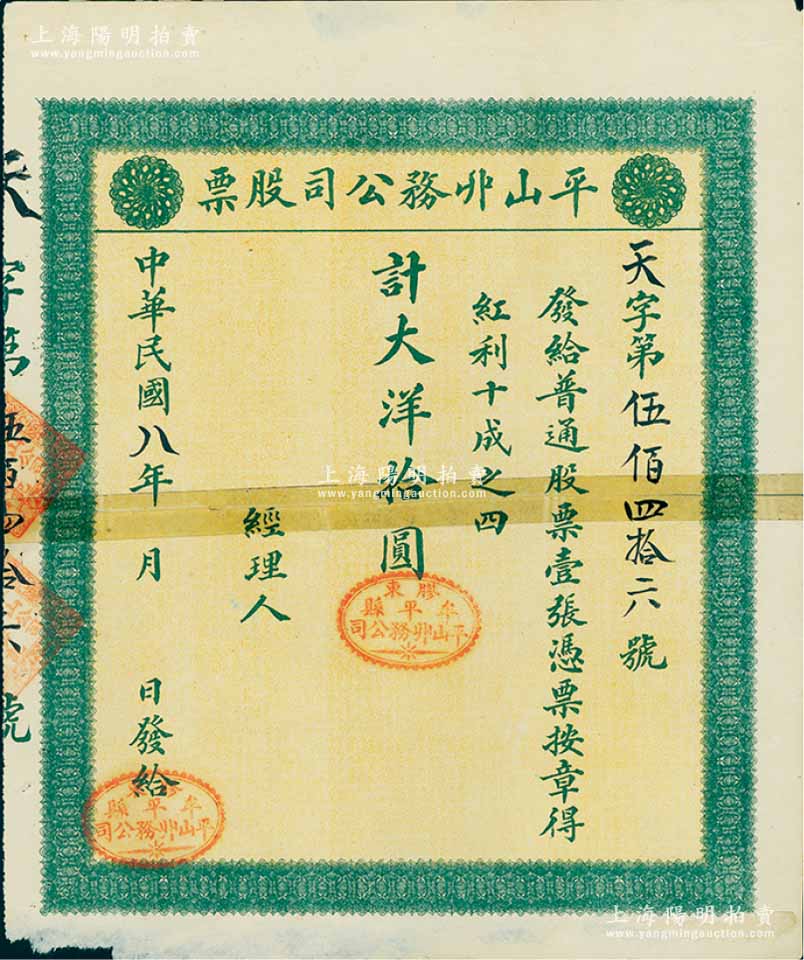 上海陽明拍賣
www.yangmingauction.com
平山丱務公司股票
天字第伍佰四拾六號
發給普通股票壹張憑票按章得
紅利十成之四
計大洋拾圓
經理人
中華民國八年 月 日發給
膠東
牟平縣
平山丱務公司
牟平縣
平山丱務公司
天字第伍佰四拾六號
上海陽明拍賣
www.yangmingauction.com
上海陽明拍賣
www.yangmingauction.com